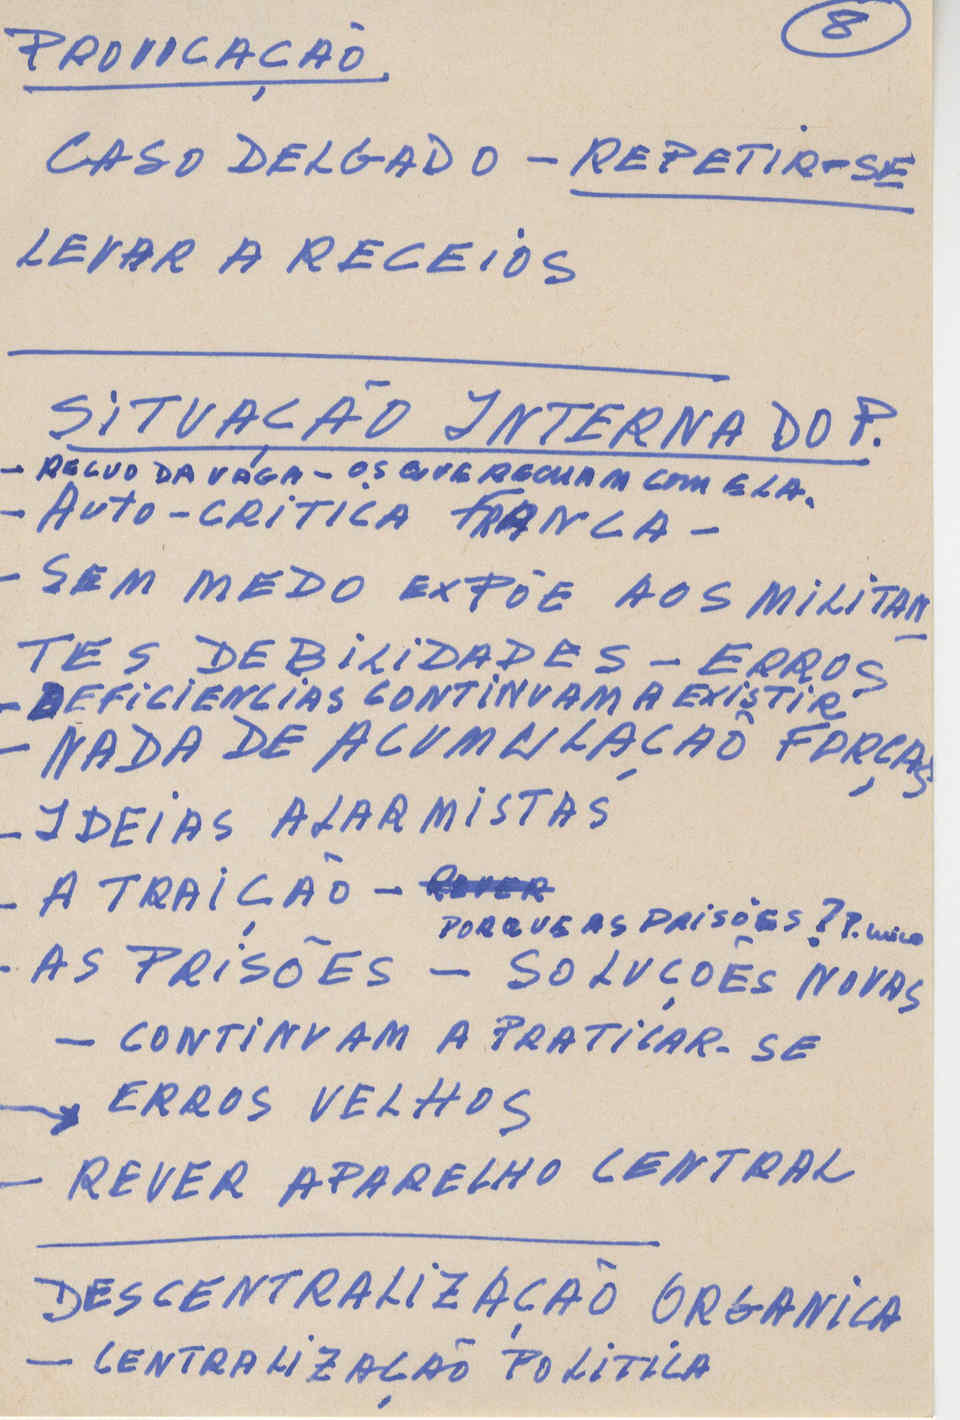 8
PROVOCAÇAÕ
CASO DELGADO - REPETIR-SE
LEVAR A RECEIOS
SITUAÇÃO INTERNA DO P.
- RECUO DA VAGA - OS QUE RECUAM COM ELA.
- AUTO-CRITICA FRANCA -
- SEM MEDO EXPÕE AOS MILITAN
TES DEBILIDADES - ERROS
- DEFICIENCIAS CONTINUAM A EXISTIR
- NADA DE ACUMULAÇAÕ FORÇAS
- IDEIAS ALARMISTAS
- A TRAIÇÃO - REVER
PORQUE AS PRISÕES? P.
- AS PRISÕES - SOLUÇOES NOVAS
- CONTINUAM A PRATICAR-SE
→ ERROS VELHOS
- REVER APARELHO CENTRAL
DESCENTRALIZAÇAÕ ORGANICA
- CENTRALIZAÇAÕ POLITICA